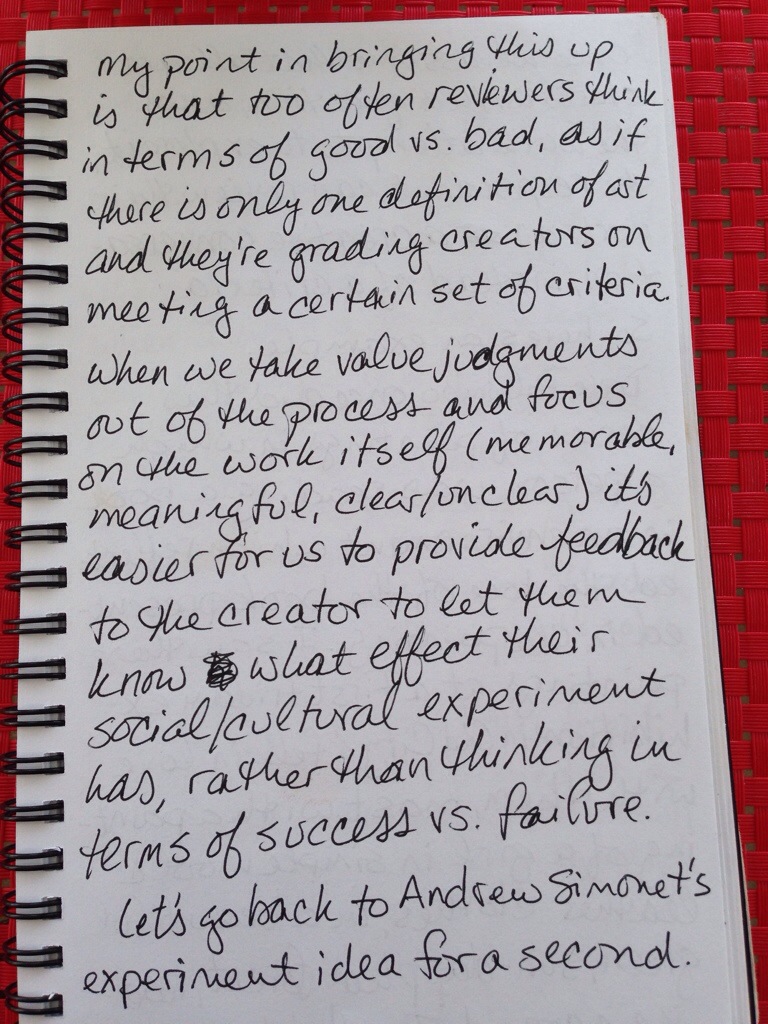 My point in bringing this up
is that too often reviewers think
in terms of good vs. bad, as if
there is only one definition of art
and they're grading creators on
meeting a certain set of criteria.
When we take value judgments
out of the process and focus
on the work itself (memorable,
meaningful, clear/unclear) it's
easier for us to provide feedback
to the creator to let them
know what effect their
social/cultural experiment
has, rather than thinking in
terms of success vs. failure.
Let's go back to Andrew Simonet's
experiment idea for a second.